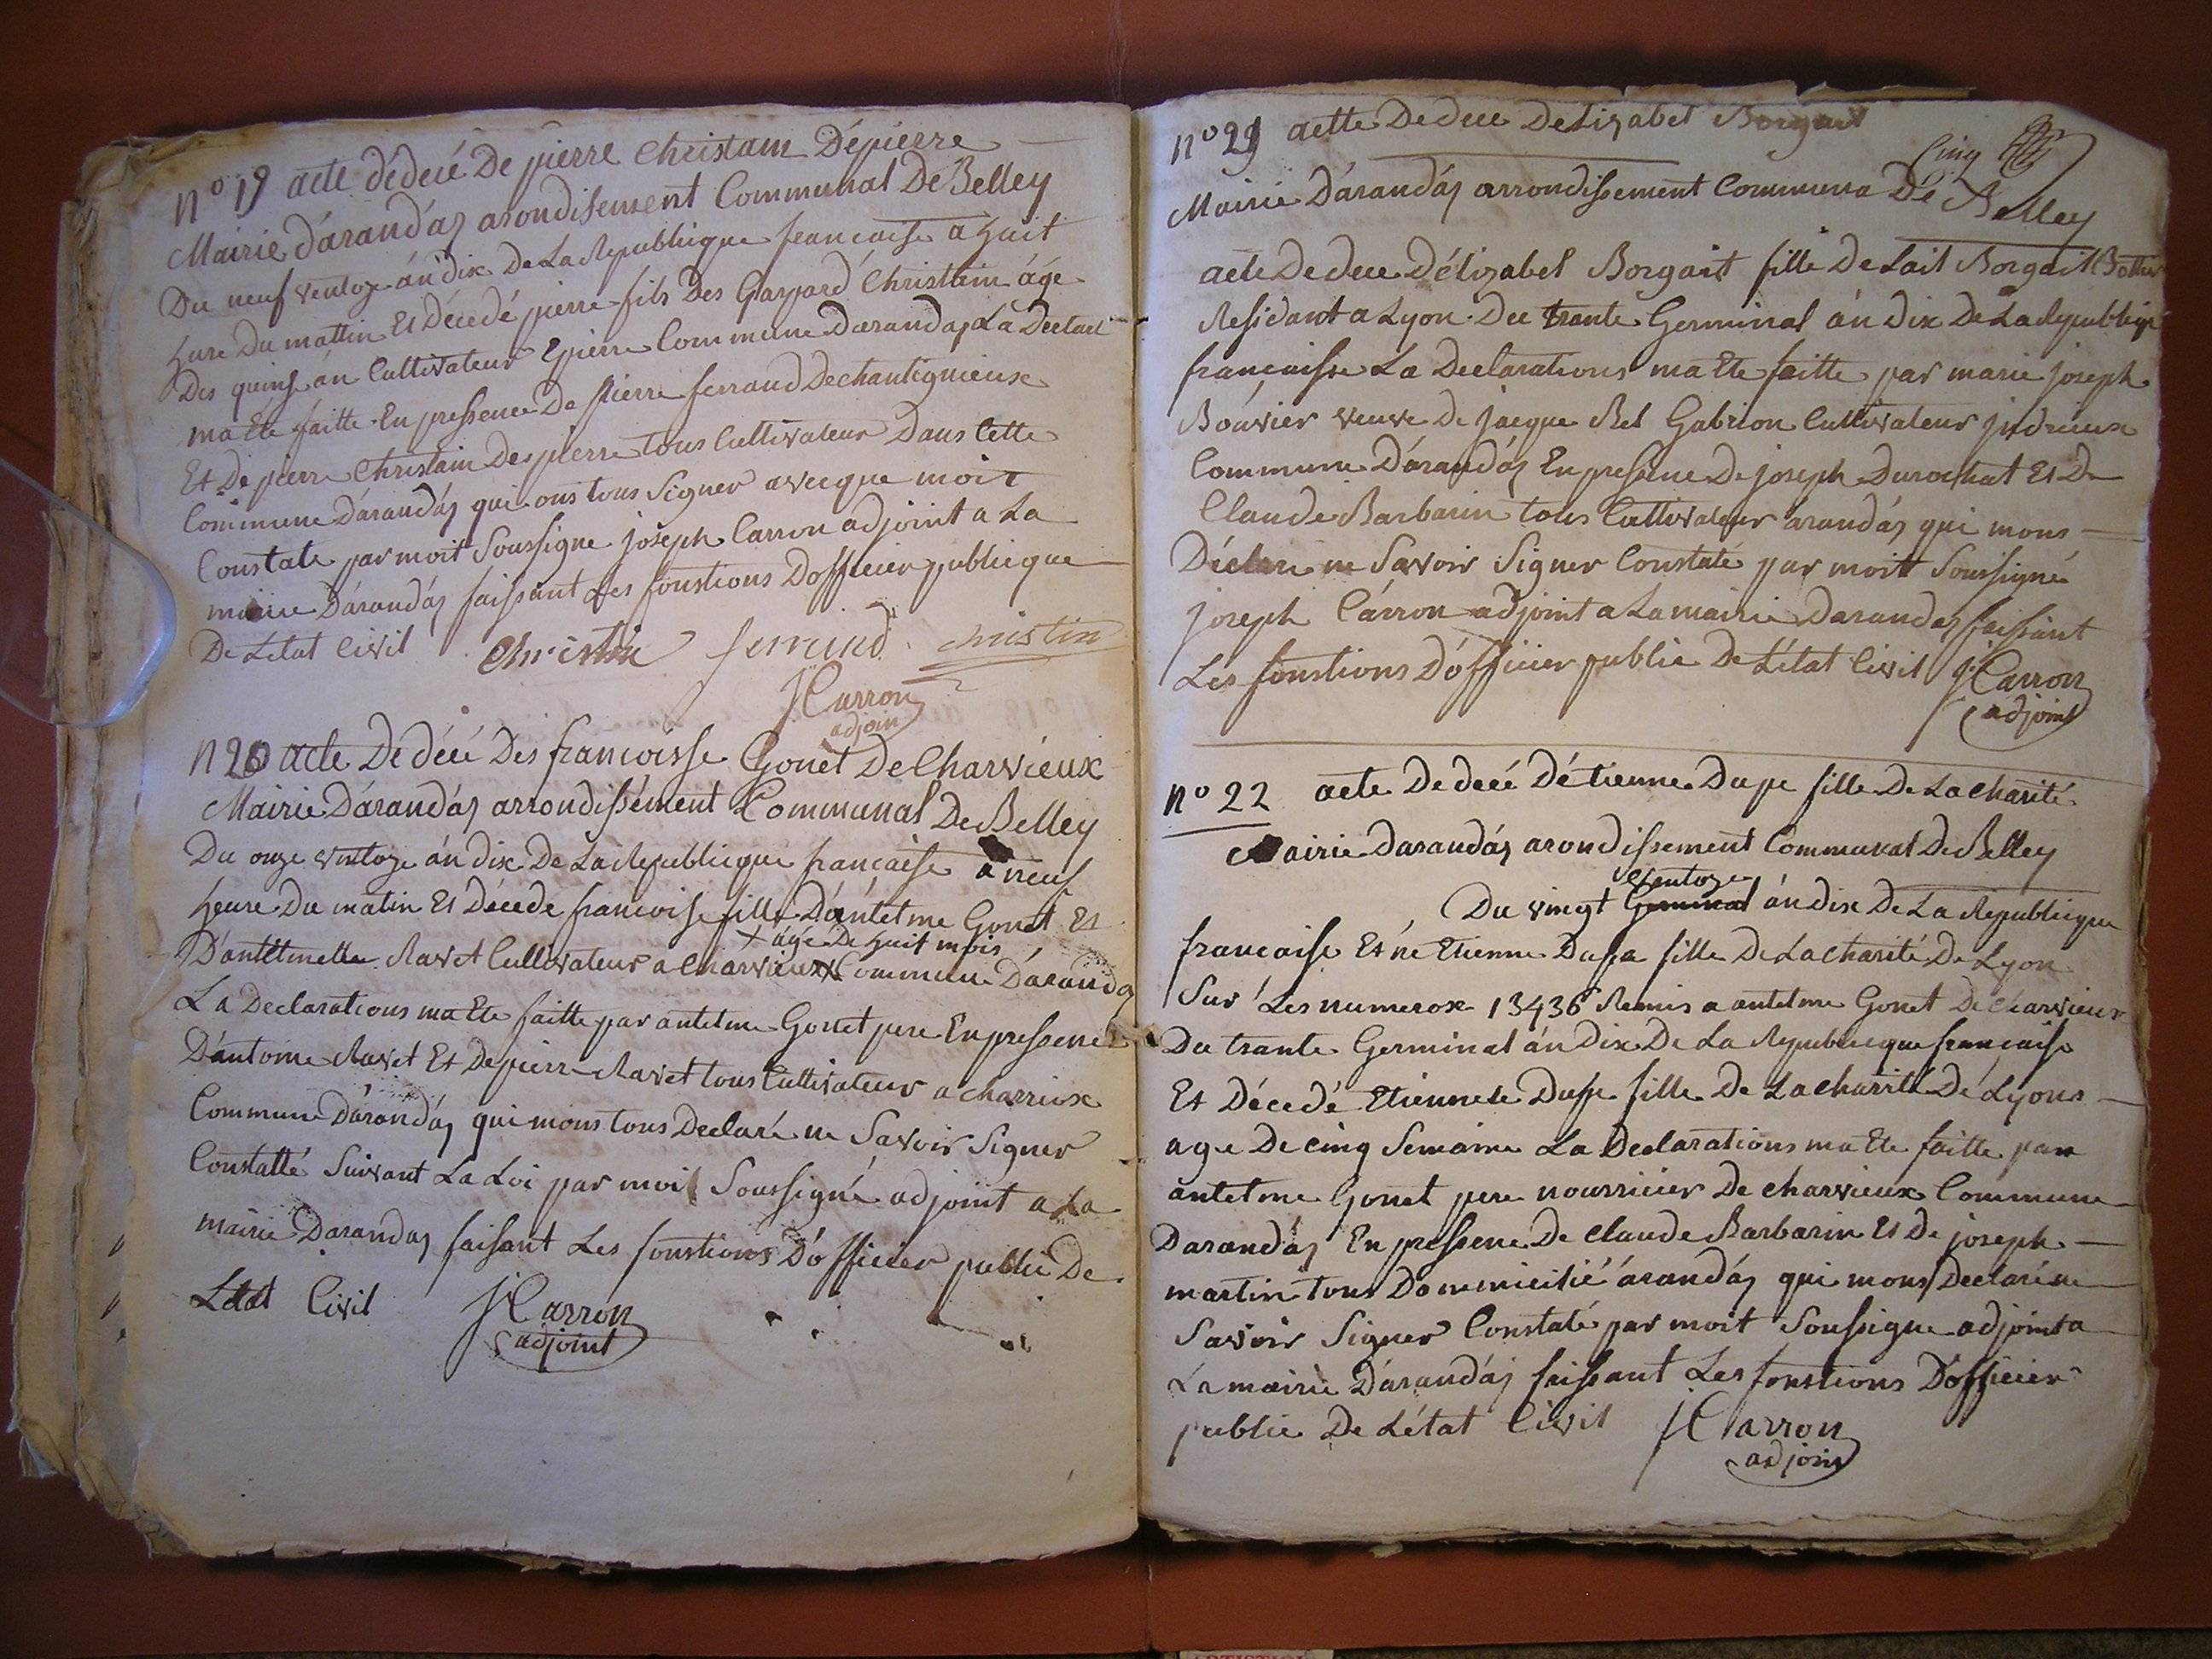 n° 19 acte dédecé De pierre christain Dépierre
Mairie d'arandás arondisement Communal De Belley
Du neuf ventoze án dix De La Republique francaise a huit
hure Du mattin Et Décedé pierre fils Des Gaspard Christain áge
Des quinse án Cultivateur Epierre Commune darandas La Declarat
ma Eté faitte En pressence De pierre ferrand De chantignieux
Et De pierre Christain Despierre tous Cultivateur Dans Cette
Commune D'arandás qui ons tous Signer avecque moit
Constate par moit Soussigne joseph Carron adjoint a La
mairie Dárandás faissant Les fonstions Dofficier publicque
De Létat Civil Christin ferrand christin
J Carron
adjoin
N 20 acte De décé Des francoisse Gonet De Charvieux
Mairie Dárandás arrondissément Communal De Belley
Du onze ventoze án dix De La Republicque française a neuf
heure Du matin Et Décede francoise fille Dántetme Gonet Et
+ áge De huit mois
D'antetmette Ravet Cultivateur a Charvieux + Commune Dárandas
La Declarations ma Ete faitte par antetme Gonet pere En pressence
D'antoine Ravet Et De pierr Ravet tous Cultivateur a charviox
Commune Dárandás qui mons tous Declaré ne Savoir Signer
Constatté Suivant La Loi par moit Soussigné adjoint a La
mairie Darandas faisant Les fonstions D'officier public De
Létat Civil J Carron
adjoint
n° 21 actte De dece Delizabet Borgait
Cinq
Mairie D'arandás arrondissement Communa Dé Belley
acte De dece D'élizabet Borgait fille De Lait Borgait
Residant a Lyon Du trante Germinal án Dix De La Republique
françaisse La Declarations ma Ete faitte par marie joseph
Bouvier veuve De jacque Rel Gabrion Cultivateur jndrieux
Commune D'arandás En pressene De joseph Durochat Et De
Claude Barbarin tous Cultivateur arandás qui mons
Déclare ne Savoir Signer Constaté par moitt Soussigné
joseph Cárron adjoint a La mairie Darandas faissant
Les fonstions D'officier public De L'état Civil J Carron
adjoint
n° 22 acte De decé Détienne Dupe fille De La charité
Mairie Darandás arondissement Communal De Belley
ventoze
Du vingt Germinal án dix De La Republicque
francaise Et né Etienne Dupe fille De La charité De Lyon
Sur Les numerox 13436 Remis a antetme Gonet De Charvieux
Du trante Germinal án Dix De La Republicque française
Et Décedé Etiennete Dupe fille De La charité Dé Lyons
age De cinq Semaine La Declarations ma Ete faitte par
antetme Gonet pere nourricier De charvieux Commune
Darandás En pressene De Claude Barbarin Et De joseph
martin tous Dommicilié árandás qui mons Declaré ne
Savoir Signer Constaté par moit Soussigne adjoint a
La mairie D'arandás faissant Les fonstions D'officier
public De L'état Civil J Carron
adjoin